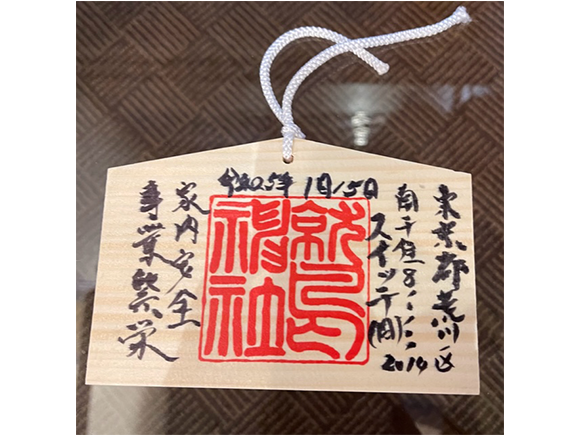 令和5年 1月15日
東京都荒川区
南千住8
2014
スイッチ(同)
鷲
神社
家内安全
事業繁栄